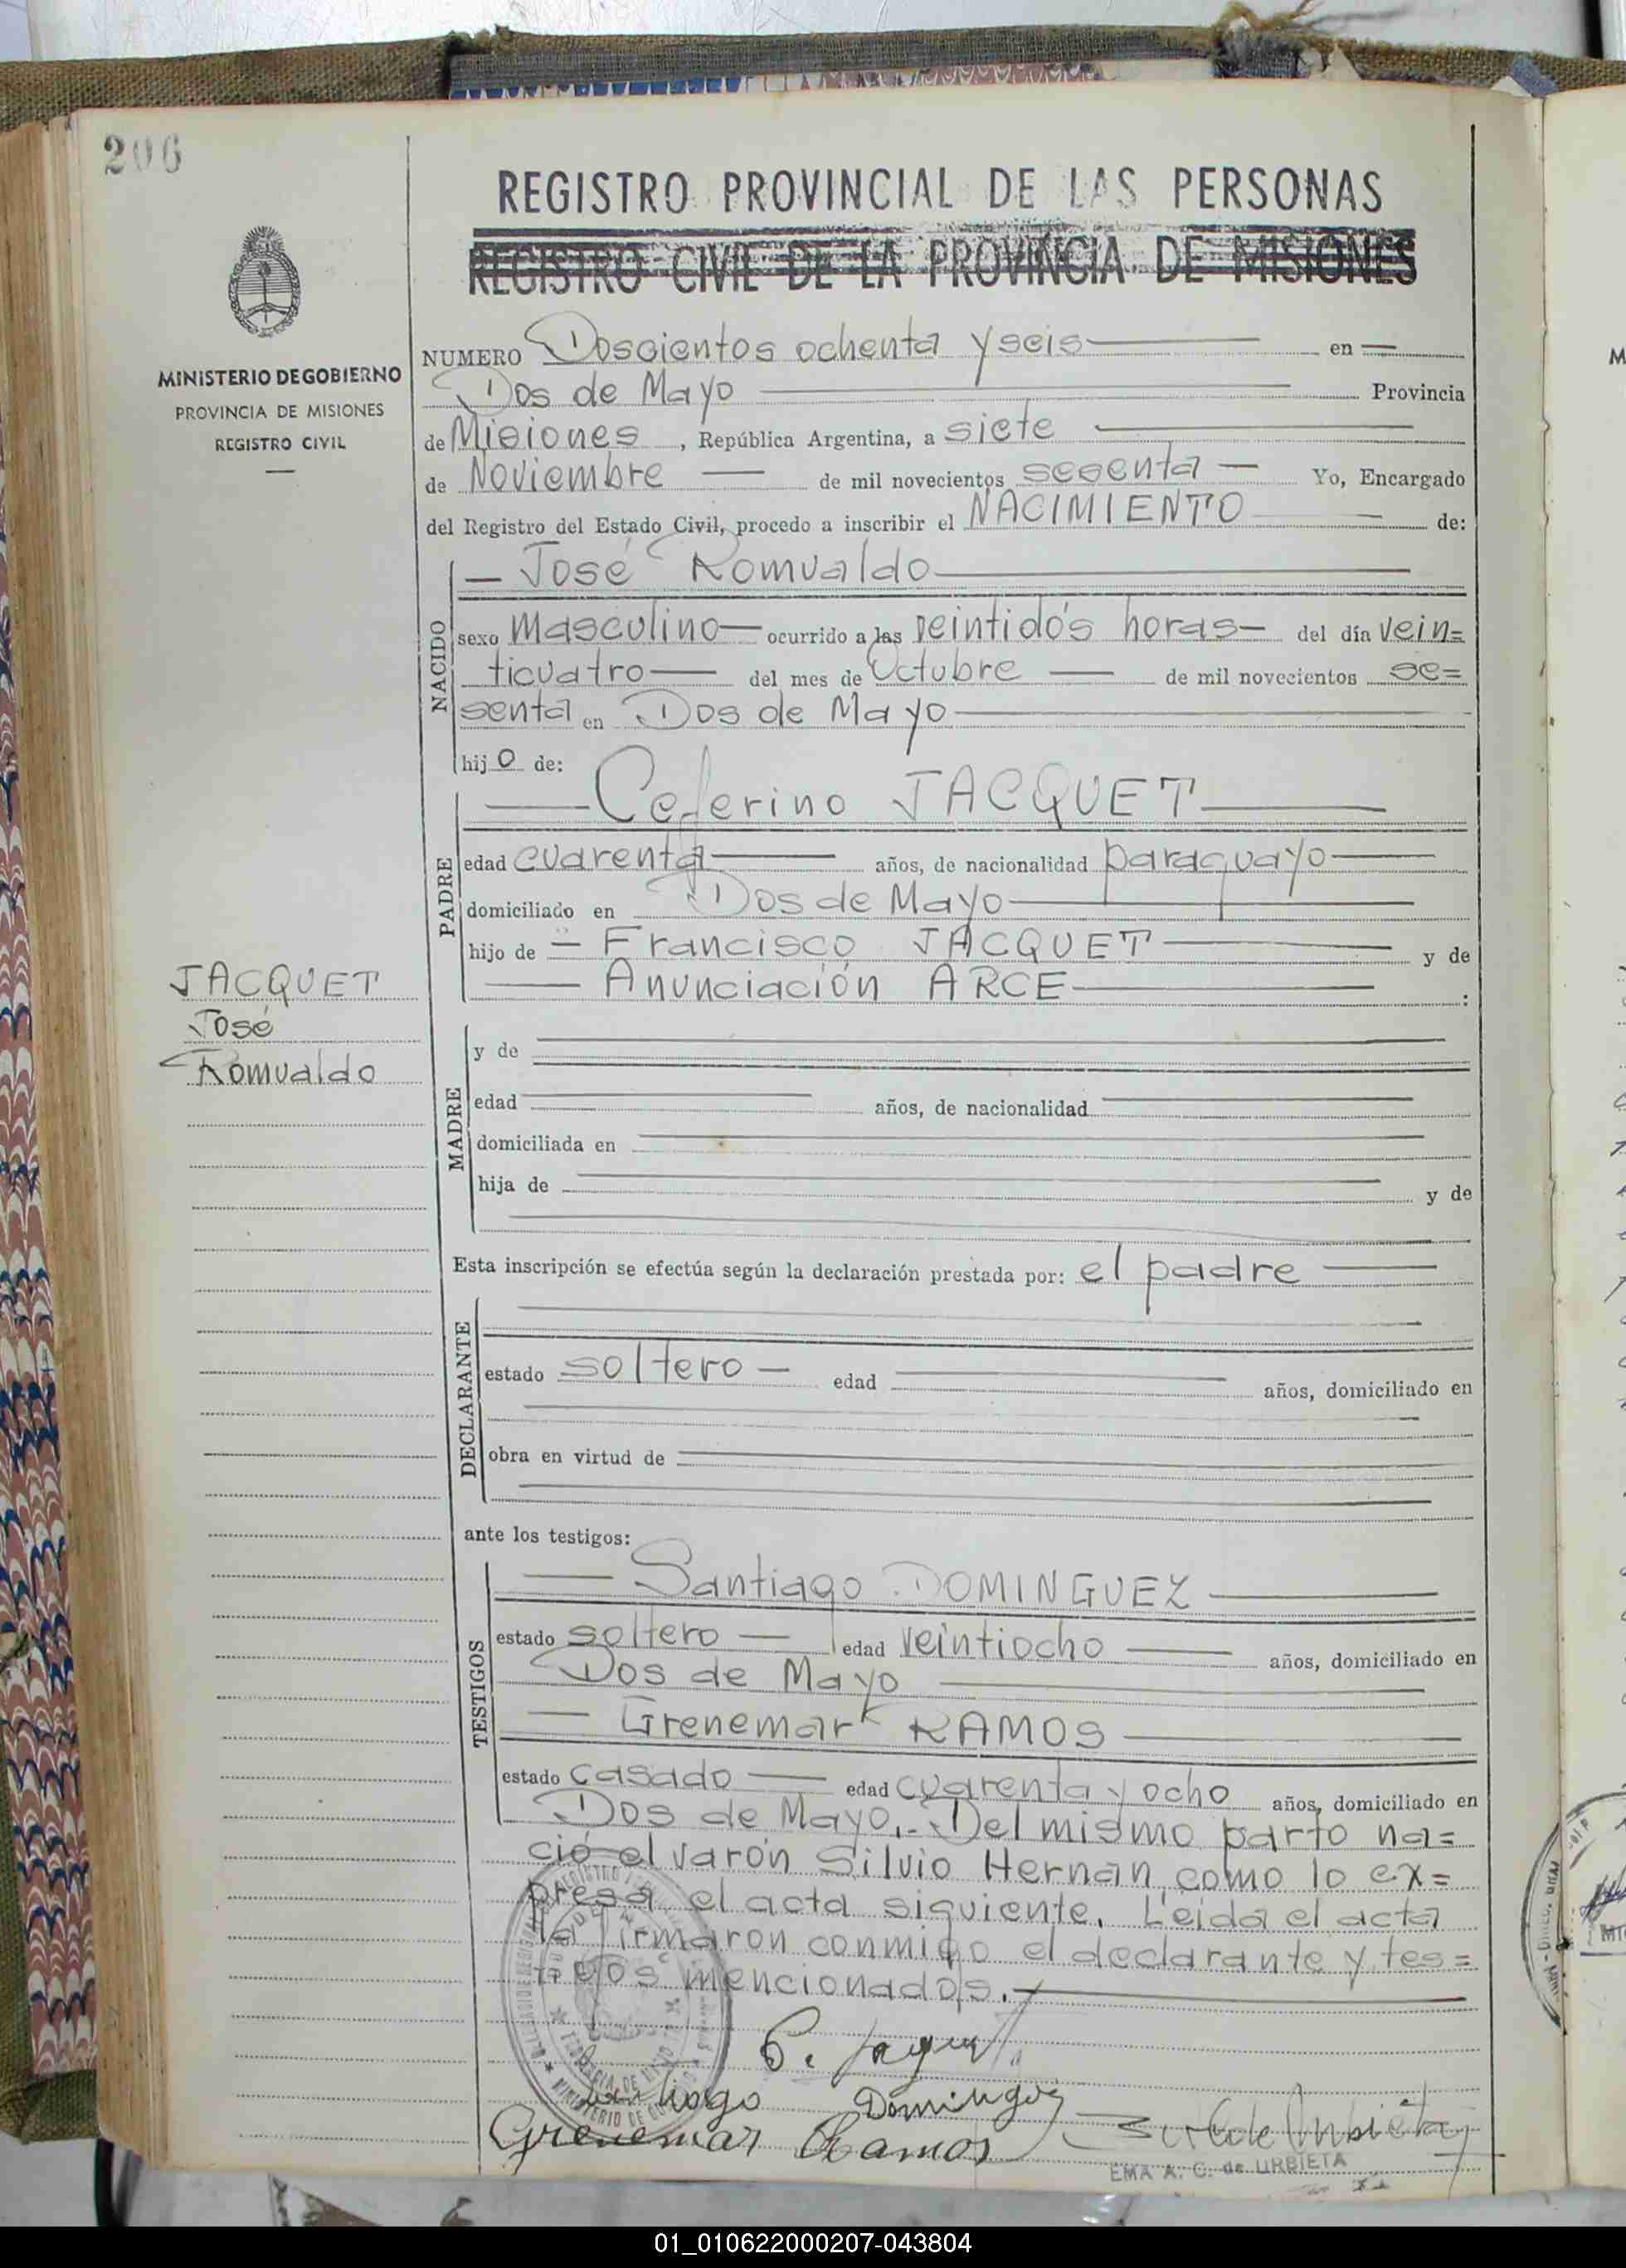 206
REGISTRO PROVINCIAL DE LAS PERSONAS
REGISTRO CIVIL DE LA PROVINCIA DE MISIONES
MINISTERIO DE GOBIERNO
PROVINCIA DE MISIONES
REGISTRO CIVIL
NUMERO Doscientos ochenta y seis en
Dos de Mayo Provincia
de Misiones, República Argentina, a siete
de Noviembre de mil novecientos sesenta Yo, Encargado
del Registro del Estado Civil, procedo a inscribir el NACIMIENTO de:
NACIDO
José Romualdo
sexo Masculino ocurrido a las veintidós horas del día vein=
ticuatro del mes de Octubre de mil novecientos se=
senta en Dos de Mayo
hijo de:
PADRE
Ceferino JACQUET
edad cuarenta años, de nacionalidad paraguayo
domiciliado en Dos de Mayo
hijo de Francisco JACQUET y de
Anunciación ARCE :
JACQUET
José
Romualdo
MADRE
y de
edad años, de nacionalidad
domiciliada en
hija de y de
Esta inscripción se efectúa según la declaración prestada por: el padre
DECLARANTE
estado soltero edad años, domiciliado en
obra en virtud de
ante los testigos:
TESTIGOS
Santiago DOMINGUEZ
estado soltero edad veintiocho años, domiciliado en
Dos de Mayo
Grenemark RAMOS
estado casado edad cuarenta y ocho años, domiciliado en
Dos de Mayo.- Del mismo parto na=
ció el varón Silvio Hernan como lo ex=
presa el acta siguiente. Leída el acta
la firmaron conmigo el declarante y tes=
tigos mencionados.-
Santiago Dominguez
Grenemar Ramos
EMA A. C. de URBIETA
01_010622000207-043804